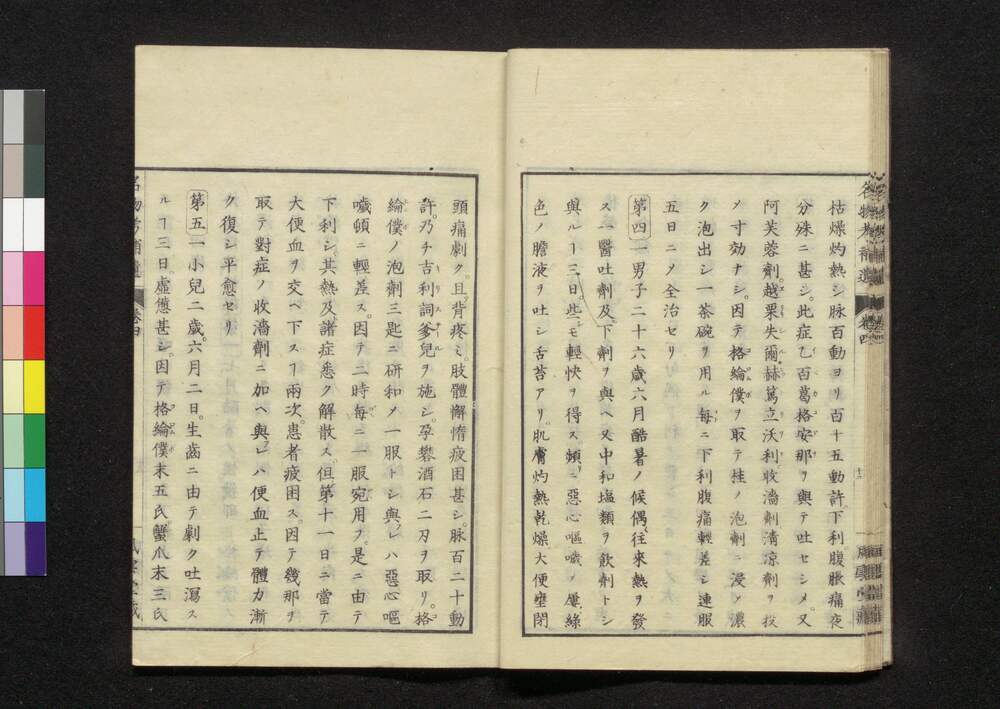 枯燥灼熱シ脉百動ヨリ百十五動許下利腹脹痛夜
分殊ニ甚シ。此症乙百葛格安那ヲ與テ吐セシメ。又
阿芙蓉劑。越栗失爾赫篤立沃利收濇劑清凉劑ヲ投
メ寸効ナシ。因テ格綸僕ヲ取テ桂ノ泡劑ニ浸メ濃
ク泡出シ一茶碗ヲ用ル每ニ下利腹痛輕差シ連服
五日ニメ全治セリ
第四 一男子二十六歲六月酷暑ノ候偶往來熱ヲ發
ス一醫吐劑及下劑ヲ與ヘ又中和塩類ヲ飲劑トシ
與ルヿ三日。些モ輕快ヲ得ス頻ニ惡心嘔噦メ屢綠
色ノ膽液ヲ吐シ舌苔アリ。肌膚灼熱乾燥大便壅閉
名物考補遺 卷四
頭痛劇ク。且背疼ミ。肢體懈惰疲困甚シ。脉百二十動
許。乃チ吉利詞爹兒ヲ施シ。孕礬酒石二刃ヲ取リ。格
綸僕ノ泡劑三匙ニ研和メ一服トシ與レハ惡心嘔
噦頓ニ輕差ス。因テ二時每ニ一服宛用フ。是ニ由テ
下利シ。其熱及諸症悉ク解散ス。但第十一日ニ當テ
大便血ヲ交ヘ下スヿ兩次。患者疲困ス。因テ幾那ヲ
取テ對症ノ收濇劑ニ加ヘ與レハ便血止テ體力漸
ク復シ平愈セリ
第五 一小兒二歲。六月二日。生齒ニ由テ劇ク吐瀉ス
ルヿ三日。虛憊甚シ。因テ格綸僕末五氏蟹爪末三氏